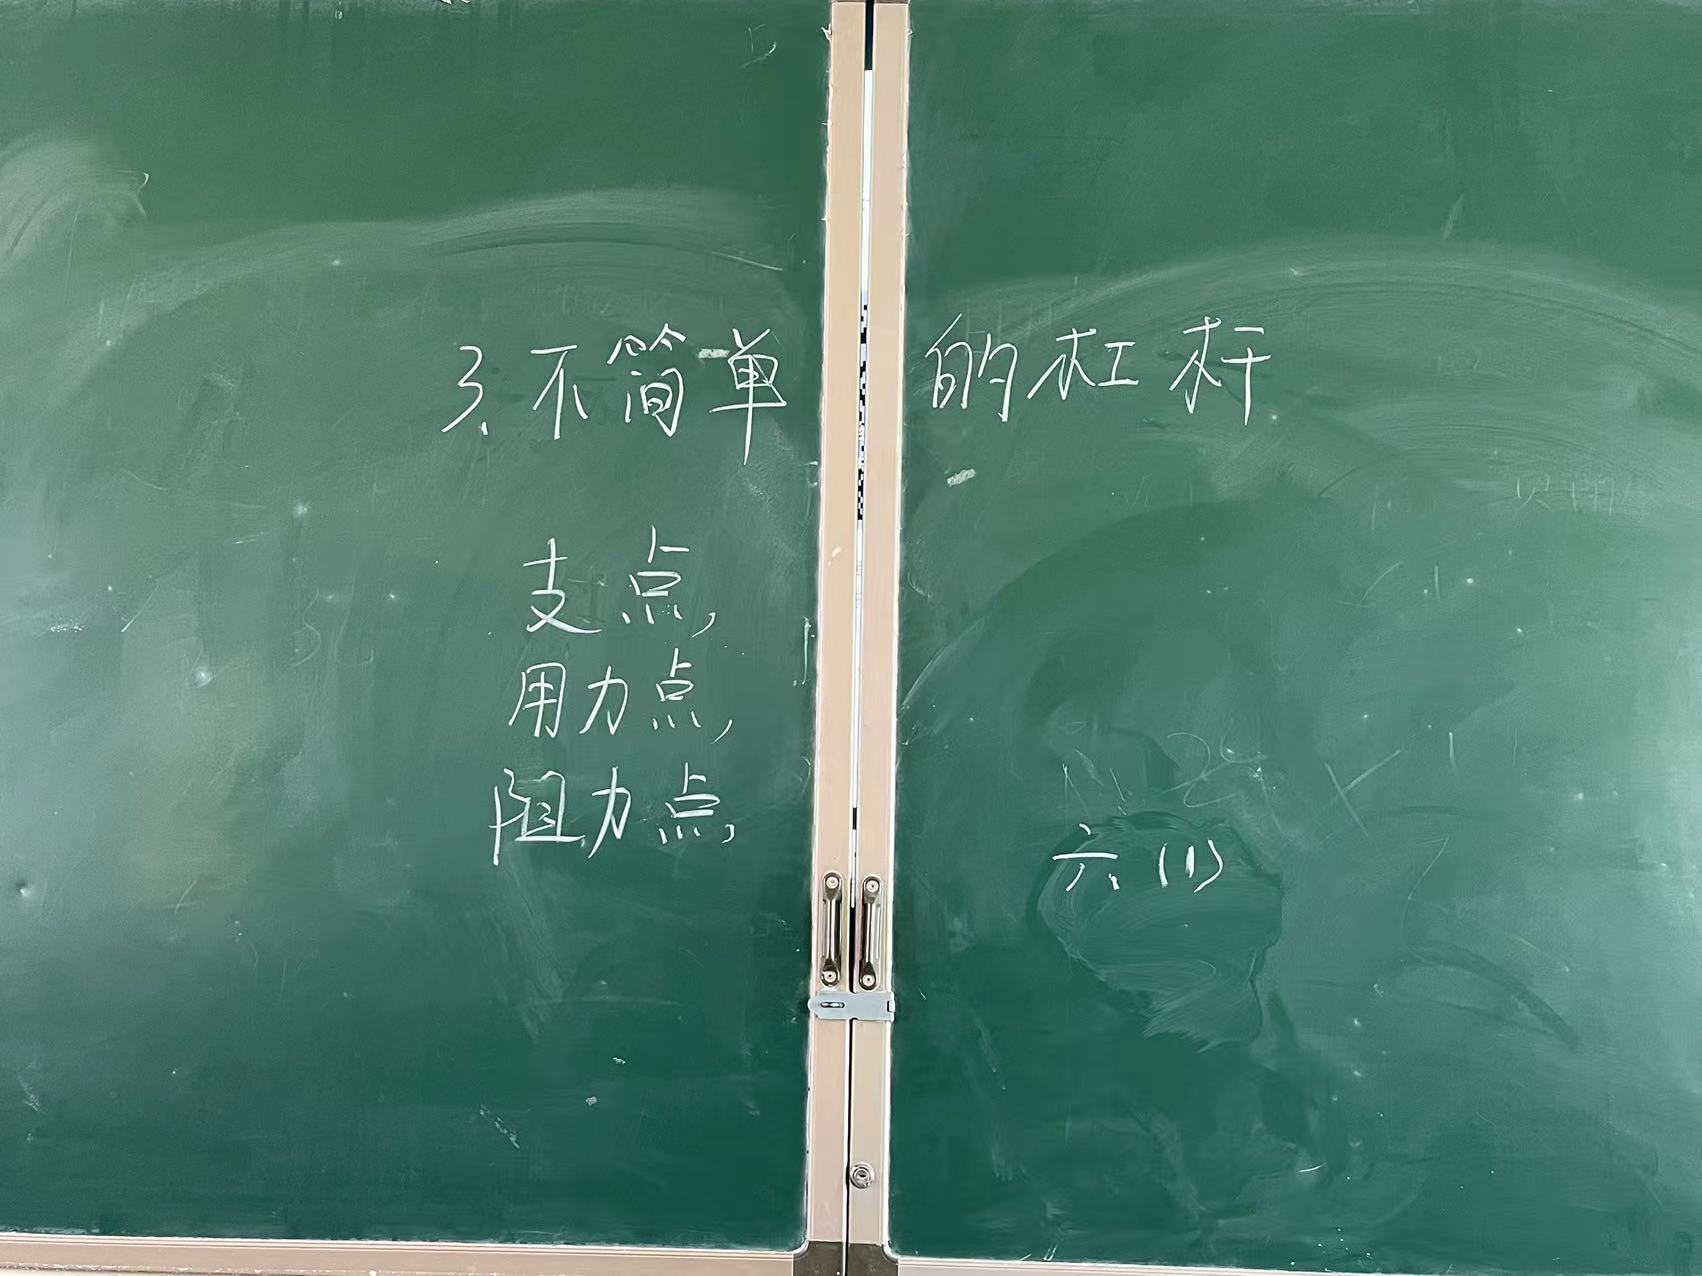 3. 不简单的杠杆
支点,
用力点,
阻力点,
六 (1)